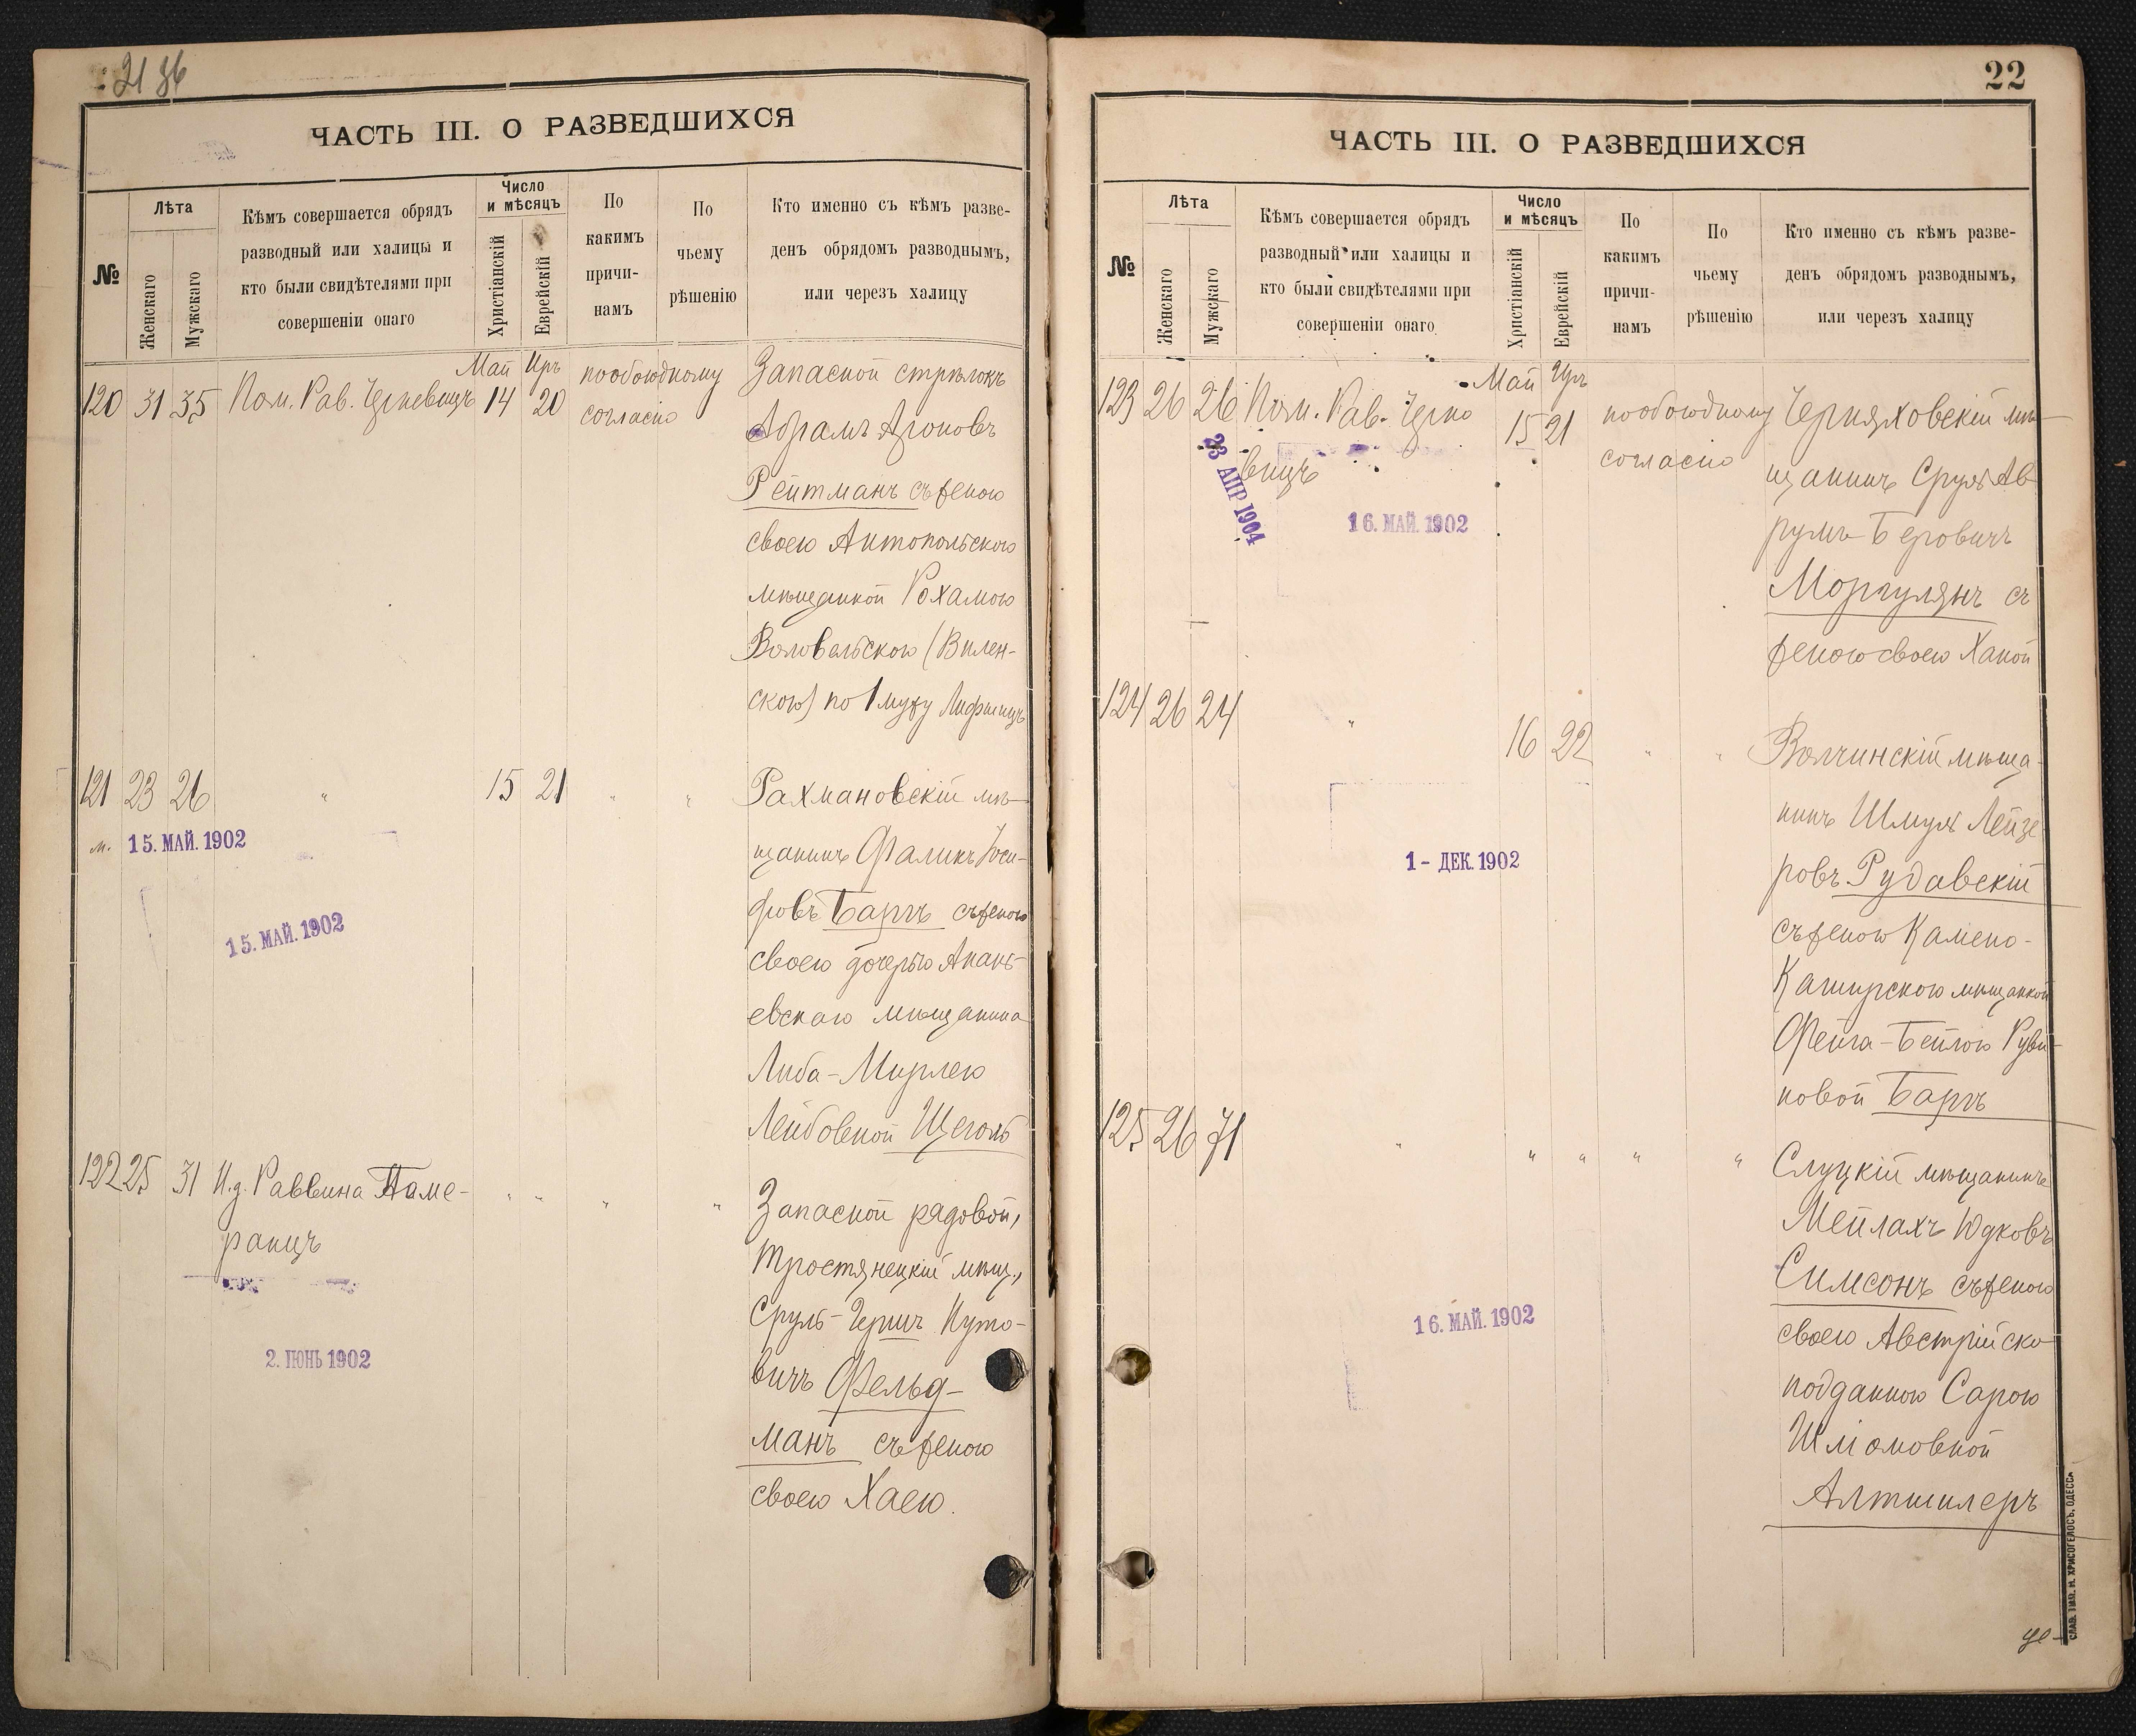 21 об
ЧАСТЬ III. О РАЗВЕДШИХСЯ
№
Лѣта
Женскаго
Мужскаго
Кѣмъ совершается обрядъ
разводный или халицы и
кто были свидѣтелями при
совершеніи онаго
Число
и мѣсяцъ
Христіанскій
Еврейскій
По
какимъ
причи-
намъ
По
чьему
рѣшенію
Кто именно съ кѣмъ разве-
денъ обрядомъ разводнымъ,
или черезъ халицу
Май Иръ
120 31 35 Пом. Рав. Черневицъ 14 20 пообоюдному
согласію
Запасной стрѣлокъ
Абрамъ Ароновъ
Рейтманъ съ женою
своею Антопольскою
мѣщанкой Рохамою
Воловельскою (Вилен-
скою) по 1 мужу Лифшицъ
121 23 26 " 15 21 " "
Рахмановскій мѣ-
щанинъ Фаликъ Іоси-
фовъ Баргъ съ женою
своею дочерью Анань-
евскаго мѣщанина
Либа-Мирлею
Лейбовной Щеголь
м. 15. МАЙ. 1902
15. МАЙ. 1902
122 25 31 И.д. Раввина Поме-
ранцъ
" " " "
Запасной рядовой,
Тростянецкій мѣщ.,
Сруль-Гершъ Нуто-
вичъ Фельд-
манъ съ женою
своею Хаею.
2. ІЮНЬ 1902
22
ЧАСТЬ III. О РАЗВЕДШИХСЯ
№
Лѣта
Женскаго
Мужскаго
Кѣмъ совершается обрядъ
разводный или халицы и
кто были свидѣтелями при
совершеніи онаго
Число
и мѣсяцъ
Христіанскій
Еврейскій
По
какимъ
причи-
намъ
По
чьему
рѣшенію
Кто именно съ кѣмъ разве-
денъ обрядомъ разводнымъ,
или черезъ халицу
Май Иръ
123 26 26 Пом. Рав. Черно
вицъ
15 21 пообоюдному
согласію
Черняховскій мѣ-
щанинъ Сруль Ав-
румъ Беровичъ
Моргулянъ съ
женою своею Ханой
23 АПР 1904
16. МАЙ. 1902
124 26 24 " 16 22 " "
Волчинскій мѣща-
нинъ Шмуль Лейзе-
ровъ Рудавскій
съ женою Камено-
Каширскою мѣщанкой
Фейга-Бейлою Руви-
новой Баргъ
1 - ДЕК. 1902
125 26 71 " " " " "
Слуцкій мѣщанинъ
Мейлахъ Юдковъ
Симсонъ съ женою
своею Австрійско
подданною Сарою
Шліомовной
Алтшилеръ
16. МАЙ. 1902
СЛАВ. ТИП. Н. ХРИСОГЕЛОСЪ, ОДЕССА